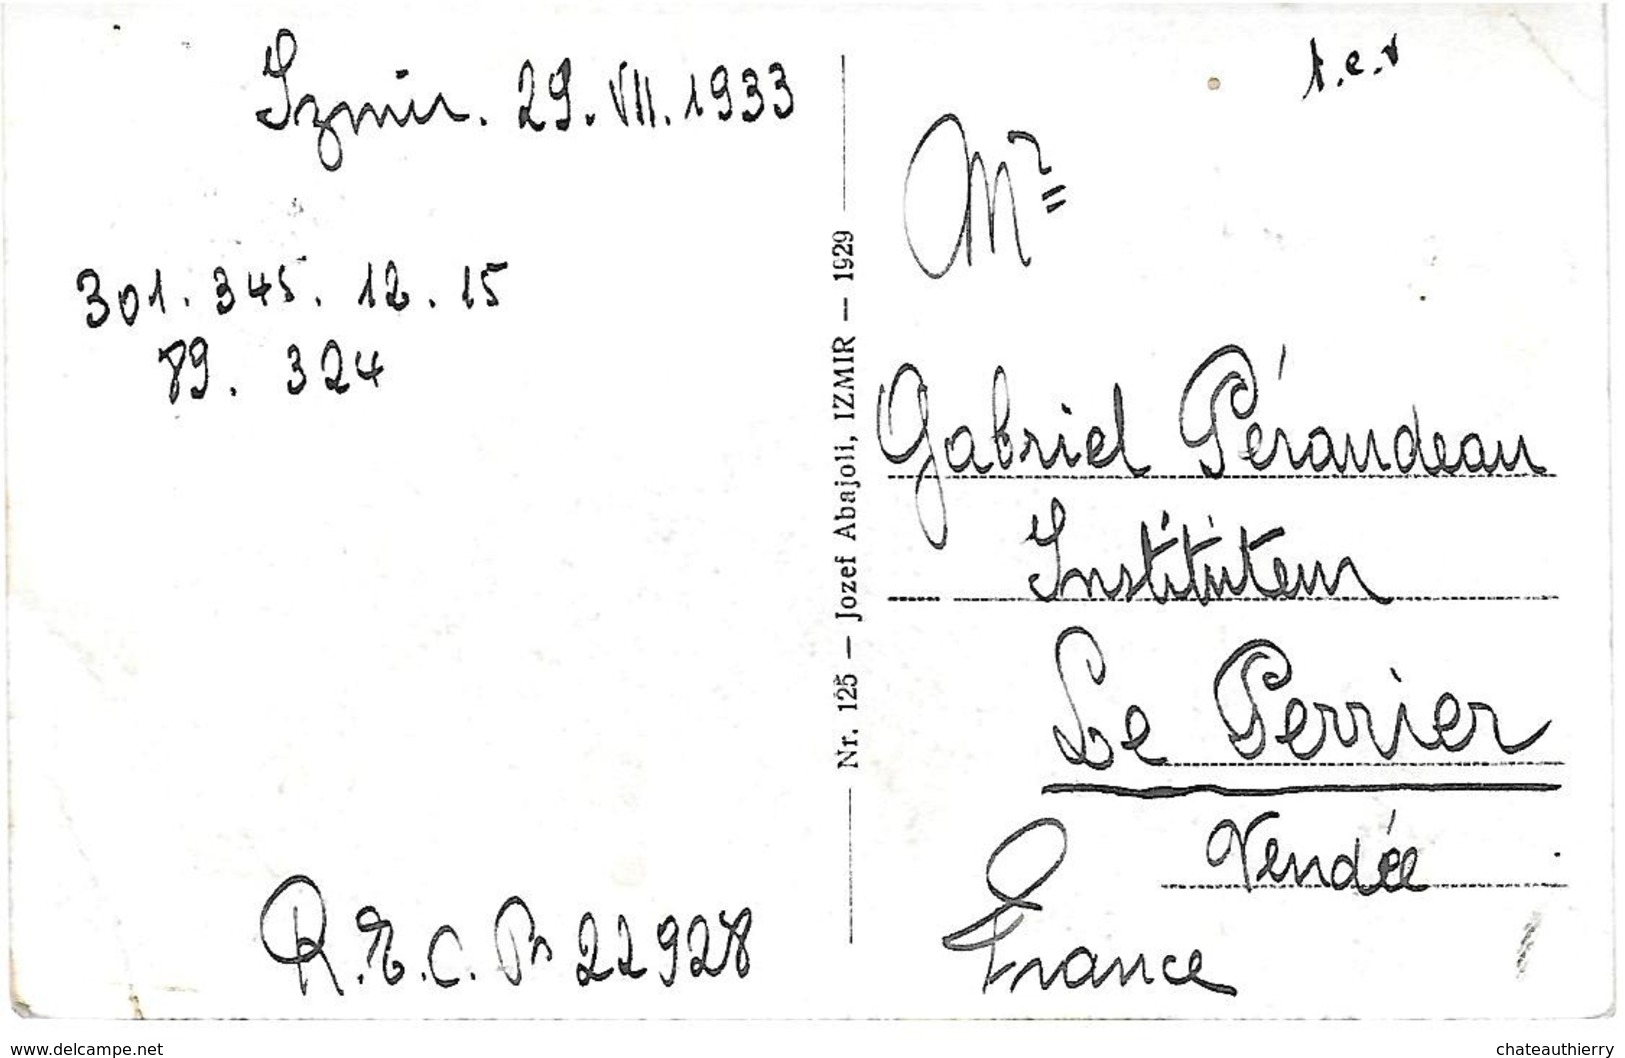 Izmir. 29. VII. 1933
301. 345. 12. 15
89. 324
Nr. 125 — Jozef Abajoli, IZMIR — 1929
t.c.v
Mr
Gabriel Péraudeau
Instituteur
Le Perrier
Vendée
France
www.delcampe.net
chateauthierry